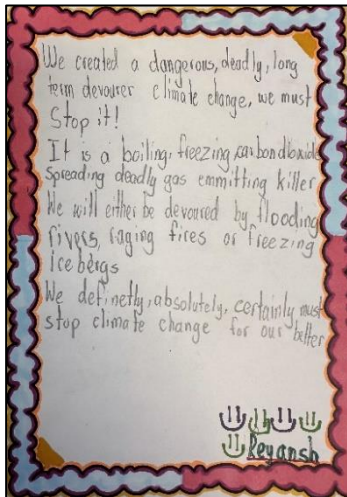 We created a dangerous, deadly, long
term devourer climate change, we must
Stop it!
It is a boiling, freezing, carbon dioxide
spreading deadly gas emmitting killer
We will either be devoured by flooding
rivers, raging fires or freezing
icebergs
We definetly, absolutely, certainly must
stop climate change for our better
Reyansh